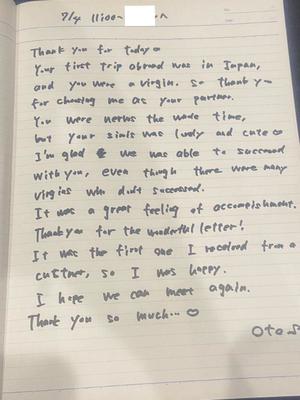 7/4 11:00~
Thank you for today
Your first trip abroad was in Japan,
and you were a virgin. so thank you
for choosing me as your partner.
You were nervus the whole time,
but your smils was lovly and cute
I'm glad we was able to succeed
with you, even though there were many
virgins who didn't successed.
It was a great feeling of accomplishment.
Thank you for the wonderful letter!
It was the first one I received from a
custmer, so I was happy.
I hope we can meet again.
Thank you so much...♡